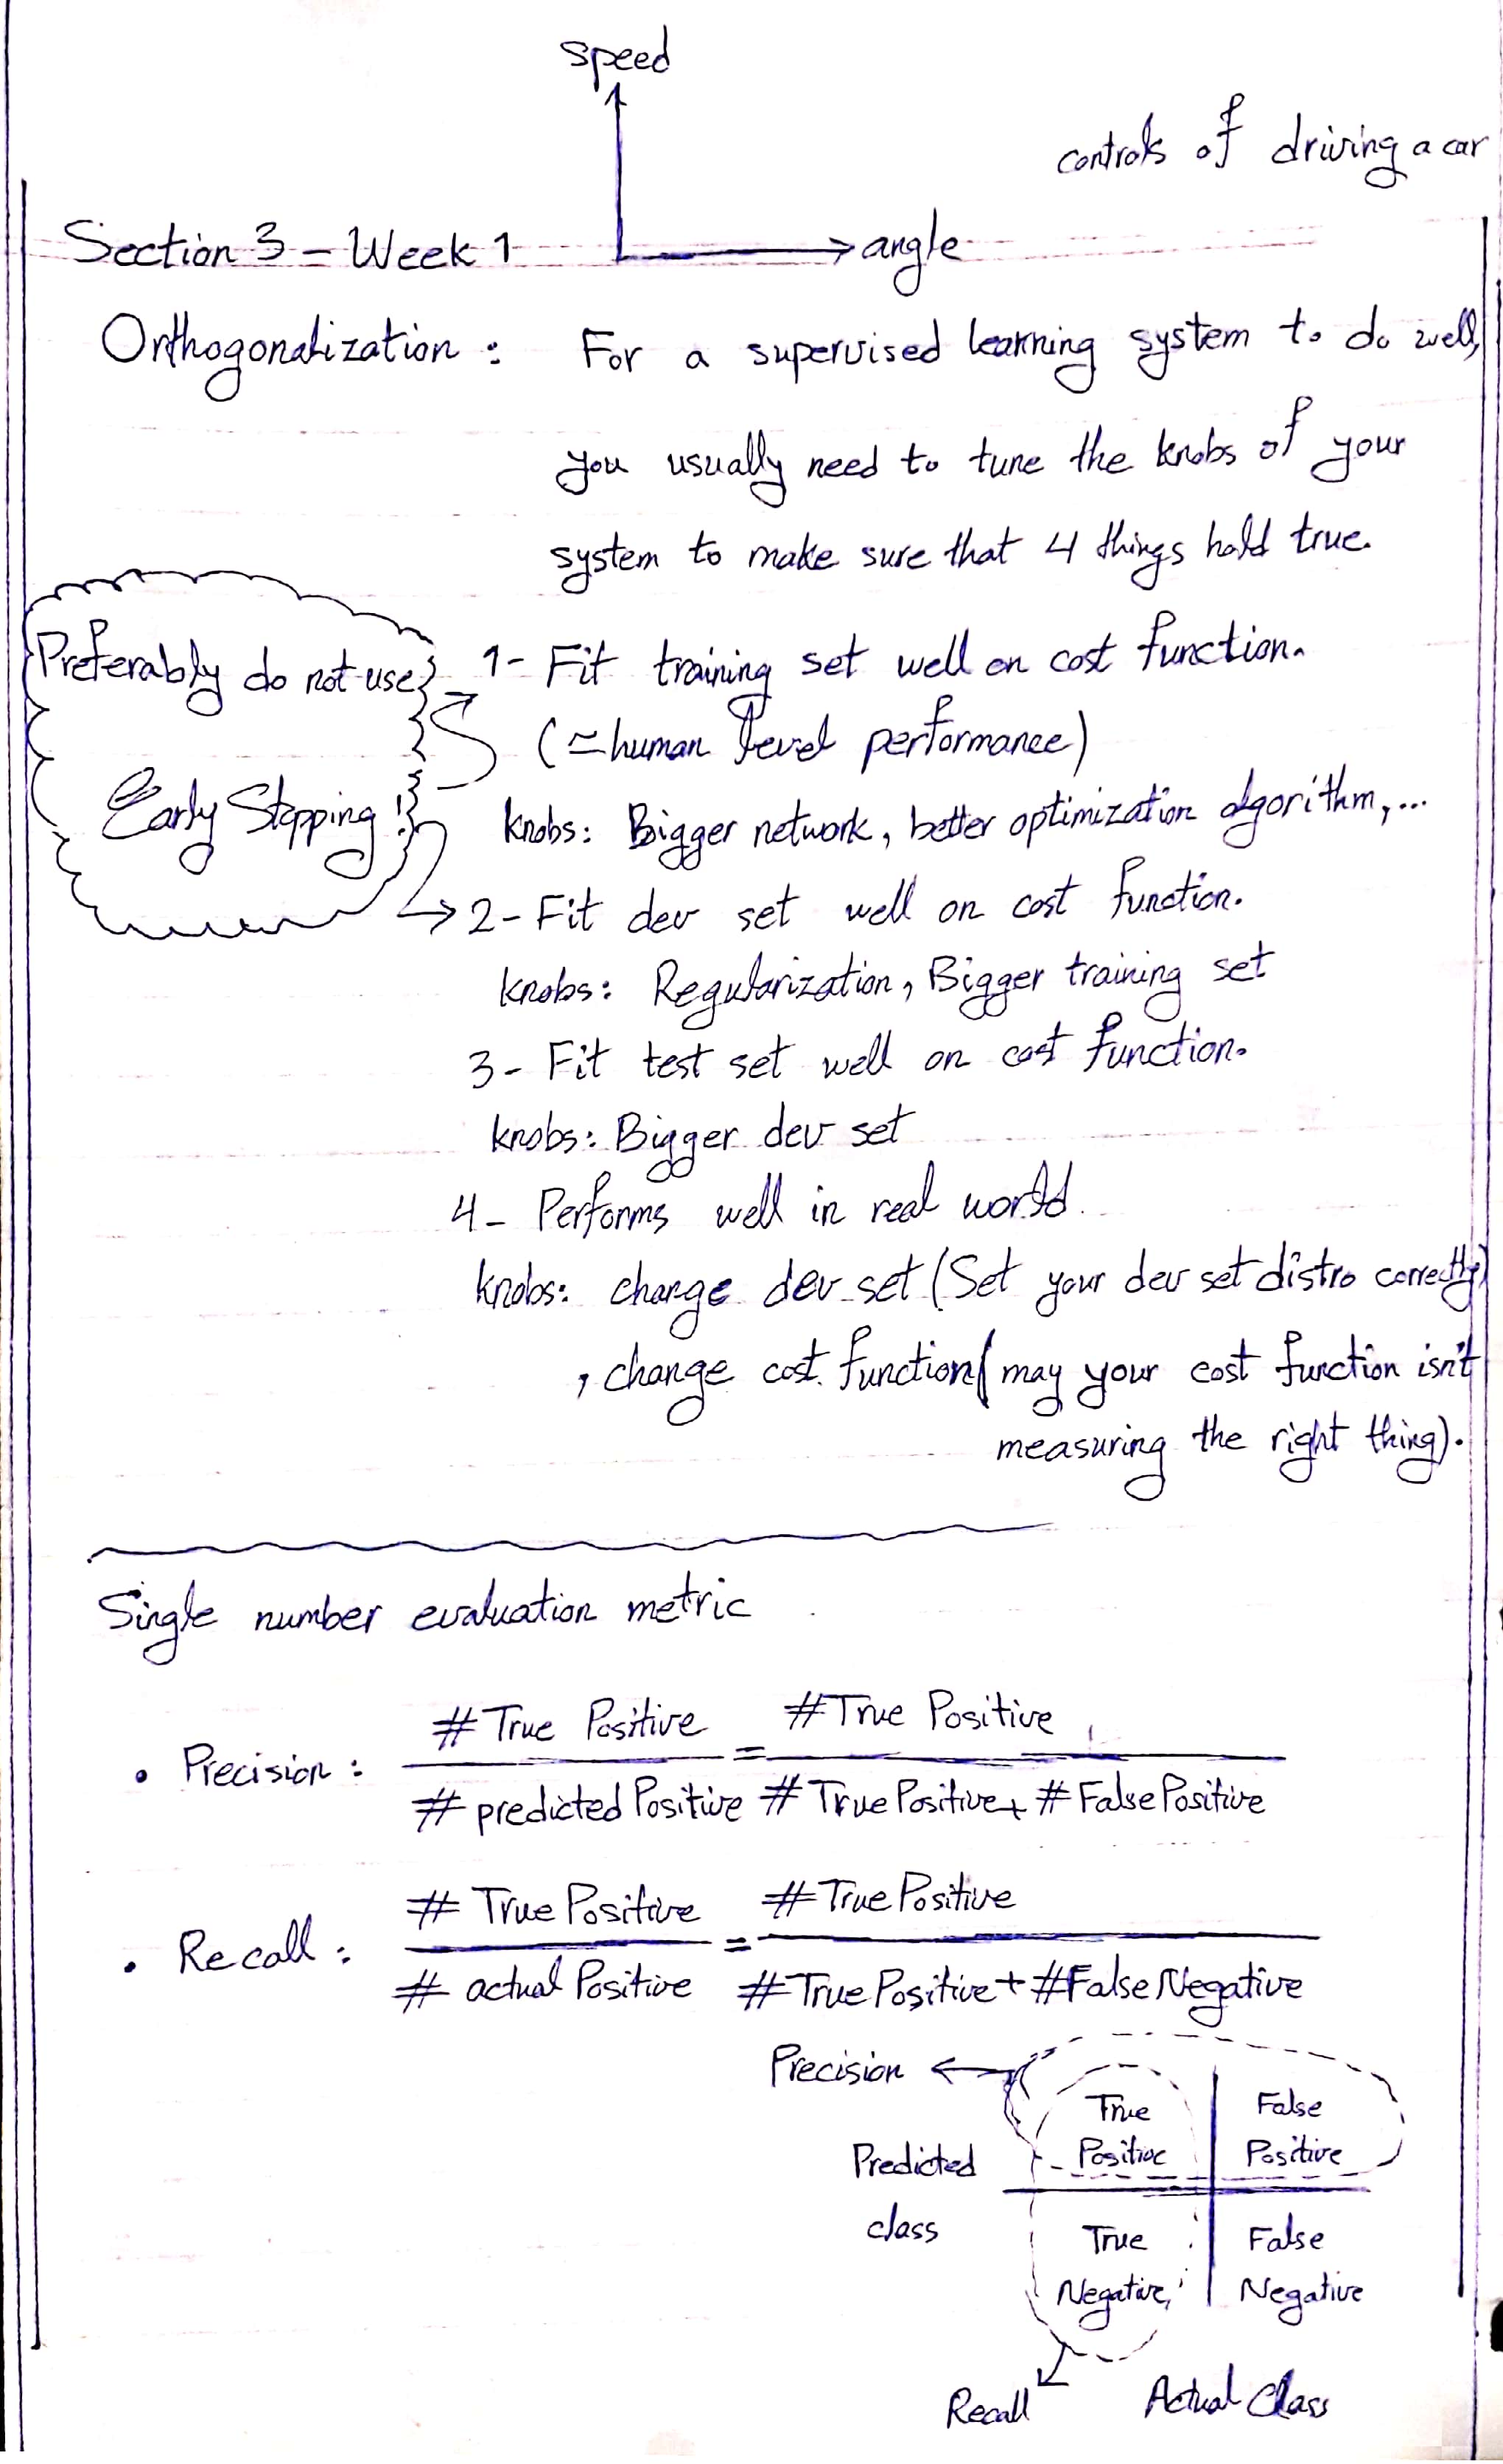 speed
controls of driving a car
Section 3 - Week 1
angle
Orthogonalization : For a supervised learning system to do well,
you usually need to tune the knobs of your
system to make sure that 4 things hold true.
Preferably do not use
Early Stopping !
1- Fit training set well on cost function.
(≃ human level performance)
knobs: Bigger network, better optimization algorithm, ...
2- Fit dev set well on cost function.
knobs: Regularization, Bigger training set
3- Fit test set well on cost function.
knobs: Bigger dev set
4- Performs well in real world.
knobs: change dev set (Set your dev set distro correctly)
, change cost function (may your cost function isn't
measuring the right thing).
Single number evaluation metric
• Precision : # True Positive / # predicted Positive = # True Positive / # True Positive + # False Positive
• Recall : # True Positive / # actual Positive = # True Positive / # True Positive + # False Negative
Precision
True Positive False Positive
Predicted class
True Negative False Negative
Recall
Actual Class